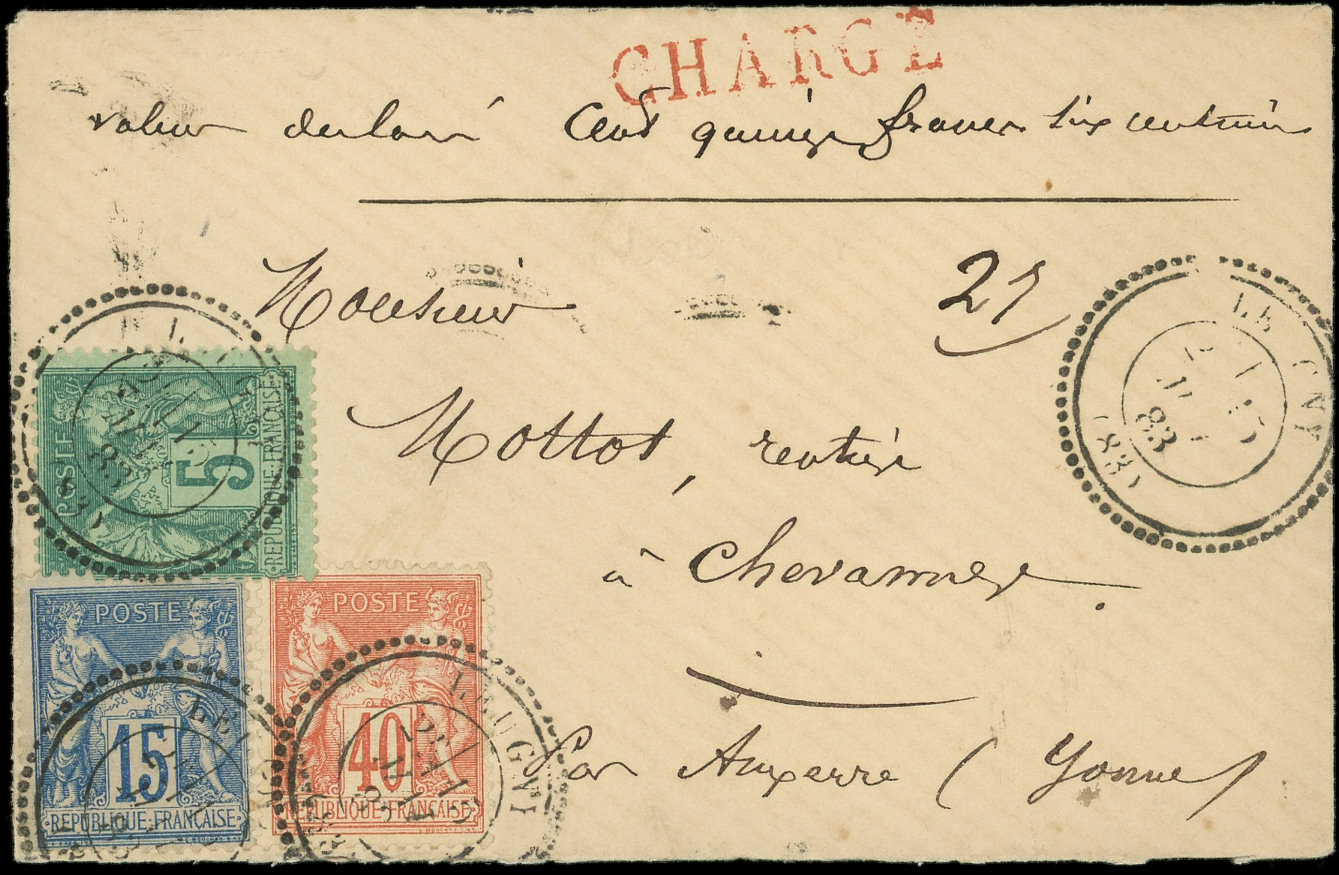 CHARGÉ
valeur déclaré Cent quinze francs dix centimes
Monsieur
27
Mottot, rentier
à Chevannes.
Par Auxerre (Yonne)
LEUGNY
83
(83)
POSTE
5
REPUBLIQUE FRANÇAISE
POSTE
15
REPUBLIQUE FRANÇAISE
POSTE
40
REPUBLIQUE FRANÇAISE
LEUGNY